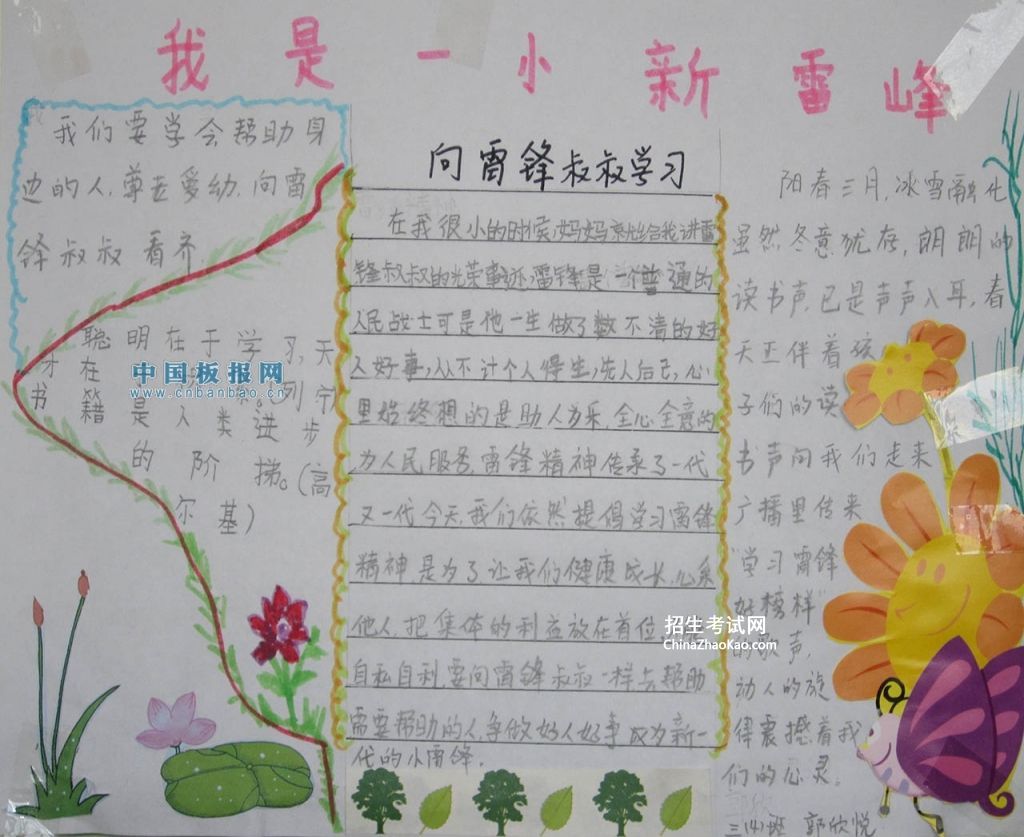 我是一小新雷峰
我们要学会帮助身
边的人,尊老爱幼,向雷
锋叔叔看齐.
聪明在于学习,天
才在
列宁
书籍是人类进步
的阶梯。(高
尔基)
中国板报网
www.cnbanbao.cn
向雷锋叔叔学习
在我很小的时候,妈妈就给我讲雷
锋叔叔的光荣事迹,雷锋是一个普通的
人民战士可是他一生做了数不清的好
人好事,从不计个人得失,先人后己,心
里始终想的是助人为乐,全心全意的
为人民服务,雷锋精神传承了一代
又一代今天,我们依然提倡学习雷锋
精神是为了让我们健康成长,心系
他人,把集体的利益放在首位
自私自利,要向雷锋叔叔一样去帮助
需要帮助的人,争做好人好事成为新一
代的小雷锋.
招生考试网
ChinaZhaoKao.com
阳春三月,冰雪融化
虽然冬意犹存,朗朗的
读书声,已是声声入耳,春
天正伴着孩
子们的读
书声向我们走来
广播里传来
"学习雷锋
好榜样"
的歌声,
动人的旋
律震撼着我
们的心灵。
三(4)班 郭欣悦